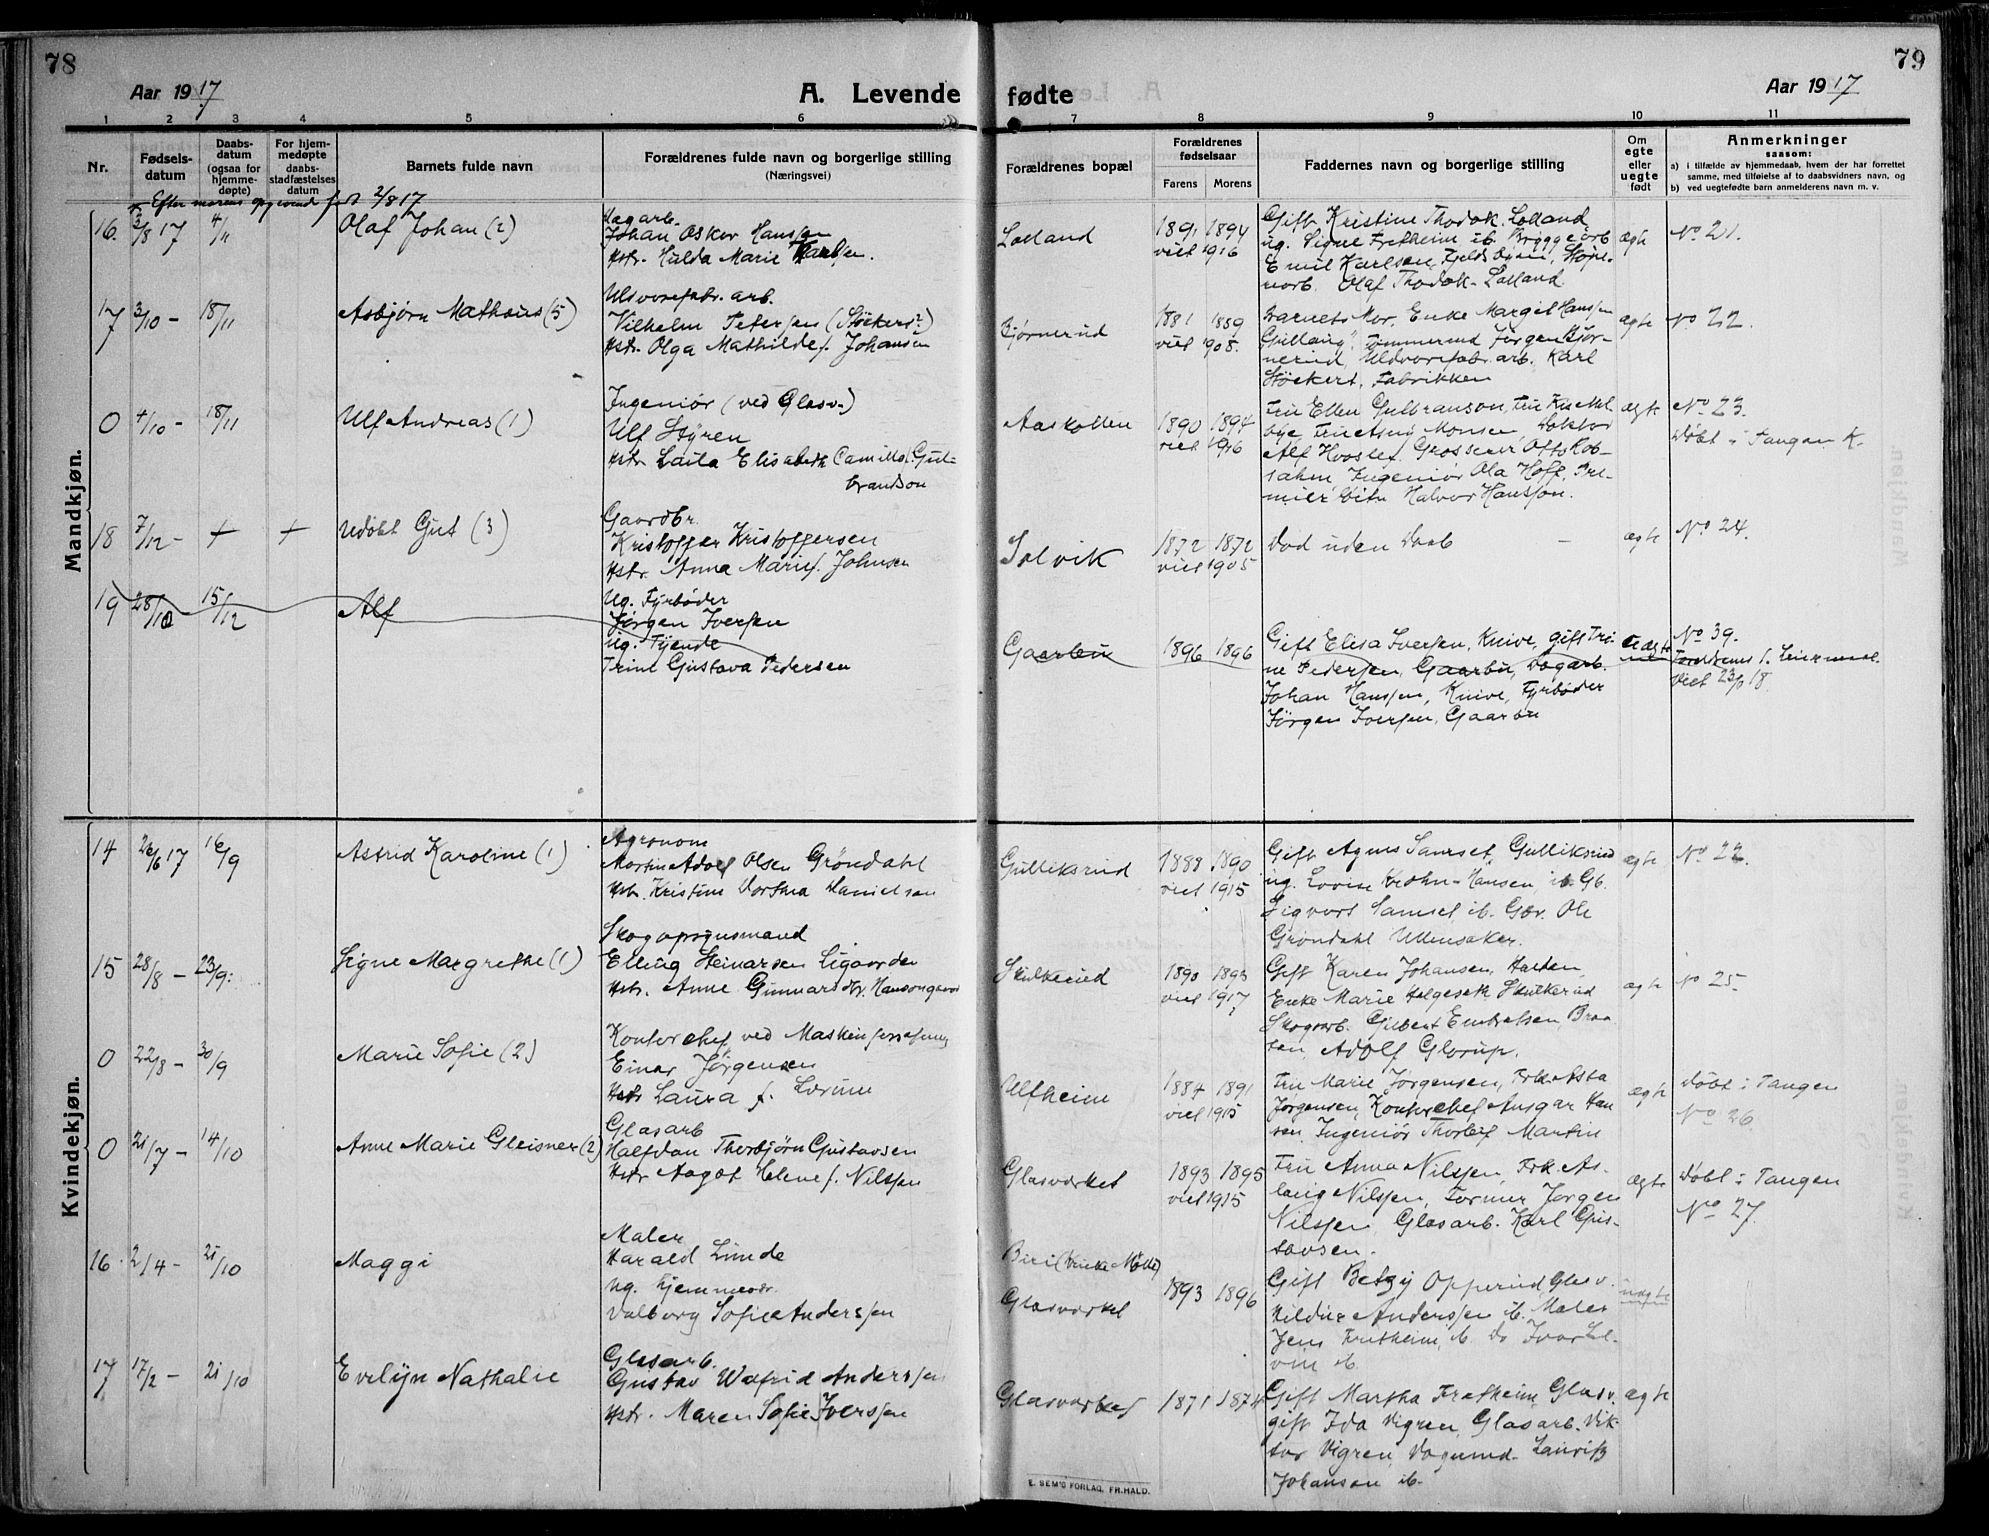 78
Aar 1917
A. Levende
fødte
Aar 1917
79
1 2 3 4 5 6 7 8 9 10 11
Nr.
Fødsels-
datum
Daabs-
datum
(ogsaa for
hjemme-
døpte)
For hjem-
medøpte
daabs-
stadfæstelses
datum
Barnets fulde navn
Forældrenes fulde navn og borgerlige stilling
(Næringsvei)
Forældrenes bopæl
Forældrenes
fødselsaar
Farens Morens
Faddernes navn og borgerlige stilling
Om
egte
eller
uegte
født
Anmerkninger
saasom:
a) i tilfælde av hjemmedaab, hvem der har forrettet
samme, med tilføielse af to daabsvidners navn, og
b) ved uegtefødte barn anmelderens navn m. v.
Efter morens opgivende født 2/8 17
Mandkjøn.
16. 3/8 17 4/11 Olaf Johan (2)
Dagarb.
Johan Oskar Hanssen
Hstr. Hulda Marie Karlsen.
Lolland
1891 1894
viet 1916
Gift Kristine Thodok. Lolland
ug. Signe Fretheim ib. Bryggearb
Emil Karlsen, Fjeldsbyen, Støpe-
riarb. Olaf Thodok. Lolland
ægte
No 21.
17 3/10 - 18/11 Asbjørn Mathæus (5)
Uldvarefabr. arb.
Vilhelm Petersen (Støckert?)
Hstr. Olga Mathilde f. Johansen
Bjørnerud
1881 1889
viet 1908.
Barnets Mor, Enke Margit Hanssen
Gullaug, Tømmermd Jørgen Bjør-
nerud, Uldvarefabr. arb. Karl
Støckert, Fabrikken
ægte
No 22.
0 4/10 - 18/11 Ulf Andreas (1)
Ingeniør (ved Glasv.)
Ulf Styren
Hstr Laila Elisabeth Camilla f. Gul-
brandson
Aaskollen
1890 1894
viet 1916
Fru Ellen Gulbranson,
Monsen, Doktor
Alf Grosserer Otto Rob-
sahm, Ingeniør Ola Hoff, Pre-
mierløitn Halvor Hansson.
ægte
No 23.
Døbt i Tangen K.
18 7/12 - + + Udøbt Gut (3)
Gaardbr.
Kristoffer Kristoffersen
Hstr. Anna Marie f. Johnsen
Solvik
1872 1872
viet 1905
Død uden Daab -
ægte
No 24.
19 28/10 15/12 Alf
Ug. Fyrbøder
Jørgen Iversen
Ug. Tjende
Trine Gustava Pedersen
Gaarbu
1896 1896
Gift Elisa Iversen, Knive, gift Tri-
ne Pedersen, Gaarbu, Dagarb.
Johan Hanssen, Knive, Fyrbøder
Jørgen Iversen, Gaarbu
Uægte
No 39.
Forældrenes 1. Leiermaal.
viet 18.
Kvindekjøn.
14 26/6 17 16/9 Astrid Karoline (1)
Agronom
Martin Adolf Olsen Grøndahl
Hstr. Kristine Dortea Danielsen
Gulliksrud
1888 1890
viet 1915
Gift Agnes Samset, Gulliksrud
ug. Lovise Krohn-Hansen, ib. Gb.
Sigvart Samset ib. Gbr. Ole
Grøndahl Ullensaker.
ægte
No 22.
15 28/8 - 23/9. Signe Margrethe (1)
Skogopsynsmand
Elling Steinarsen Ligaarden
Hstr. Anne Gunnarsdtr. Hansongaard
Skulkerud
1890 1893
viet 1917
Gift Karen Johansen, Hasten,
Enke Marie Helgeseth Skulkerud
Skogsarb. Gilbert Braa-
ten, Adolf Glorup.
ægte
No 25.
0 22/8 - 30/9 Marie Sofie (2)
Kontorchef ved Maskinforretning
Einar Jørgensen
Hstr Laura f. Lerum
Ulfheim
1884 1891
viet 1915
Fru Marie Jørgensen, Frk. Asta
Jørgensen, Kontorchef Ansgar Han-
sen, Ingeniør Thorleif Martin
ægte
Døbt i Tangen
No 26
0 21/7 - 14/10 Anne Marie Gleisner (2)
Glasarb
Halfdan Thorbjørn Gustavsen
Hstr Aagot Helene f. Nilssen
Glasværket
1893 1895
viet 1915
Fru Anna Nilssen, Frk. As-
laug Nilssen, Former Jørgen
Nilssen Glasarb. Karl Gus-
tavsen.
ægte
Døbt i Tangen
No 27.
16. 2/4 - 21/10 Maggi
Maler
Harald Linde
Ug. hjemmevær.
Valborg Sofie Anderssen
Biri
Glasværket
1893 1896
Gift Betzy Opperud, Glasv.
Hildur Anderssen ib. Maler
Jens Fretheim, ib. Do Ivar
ib.
uægte
17 17/2 - 21/10 Evelyn Nathalie
Glasarb.
Gustav Walfrid Anderssen
Hstr. Maren Sofie Iverssen
Glasværket
1871 1874
Gift Martha Fretheim, Glasv.
gift Ida Vigren, Glasarb. Vik-
tor Vigren, Vognmd. Lauritz
Johansen ib.
ægte
E. SEM'S FORLAG, FR.HALD.